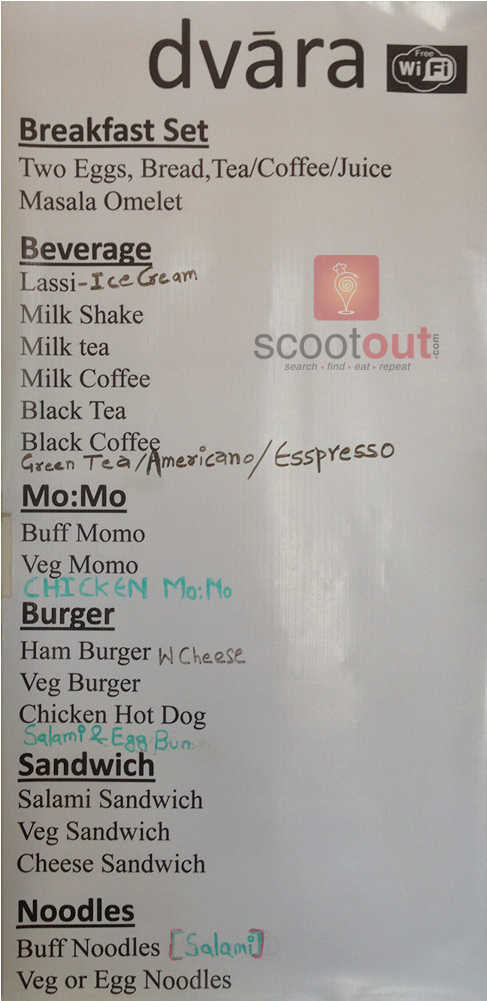 dvāra
Free
WiFi
Breakfast Set
Two Eggs, Bread,Tea/Coffee/Juice
Masala Omelet
Beverage
Lassi-Ice Cream
Milk Shake
Milk tea
Milk Coffee
Black Tea
Black Coffee
Green Tea/Americano/Esspresso
scootout.com
search • find • eat • repeat
Mo:Mo
Buff Momo
Veg Momo
CHICKEN Mo:Mo
Burger
Ham Burger W Cheese
Veg Burger
Chicken Hot Dog
Salami & Egg Bun
Sandwich
Salami Sandwich
Veg Sandwich
Cheese Sandwich
Noodles
Buff Noodles [Salami]
Veg or Egg Noodles